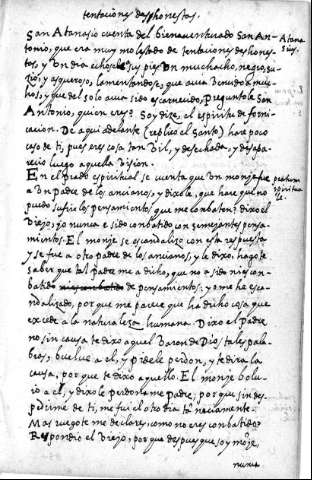 tentaciones deshonestas.
San Atanasio cuenta del bienaventurado San An-
Atana
sius.
tonio, que era muy molestado de tentaciones deshones-
tas, y un dia echose a sus pies un muchacho, negro, su-
zio, y asqueroso, lamentandose, que auia Vencido a mu-
chos, y que del solo auia sido escarnecido, Preguntole San
Antonio, quien eres? Soy dize, el espiritu de forni-
cacion. De aqui adelante (replico el Santo) hare poco
caso de ti, pues eres cosa tan Vil, y desechada, y desapa-
recio luego aquella Vision.
En el Prado espiritual se cuenta que Un monje fue
pratum
spiritua
le.
a Un Padre de los ancianos, y dixole, que hare que no
puedo sufrir los pensamientos que me conbaten? dixo el
Viejo, yo nunca e sido conbatido con semejantes pensa-
mientos. El monje se escandalizo con esta respuesta
y se fue a otro padre de los ancianos, y le dixo, hagote
saber que tal padre me a dicho, que no a sido nis con-
batido de pensamientos, y ome he esca-
ndalizado, por que me parece que ha dicho cosa que
excede a la naturaleza humana. Dixo el Padre
no sin causa te dixo aquel Baron de Dios tales pala-
bras, buelue a el, y pidele perdon, y te dira la
causa, por que te dixo aquello. El monje bolu-
io a el, y dixole perdoname Padre, por que sin des-
pedirme de ti, me fui el otro dia tan neciamente.
Mas ruegote me declares, como no eres conbatido?
Respondio el Viejo, por que despues que soy moje,
nunca